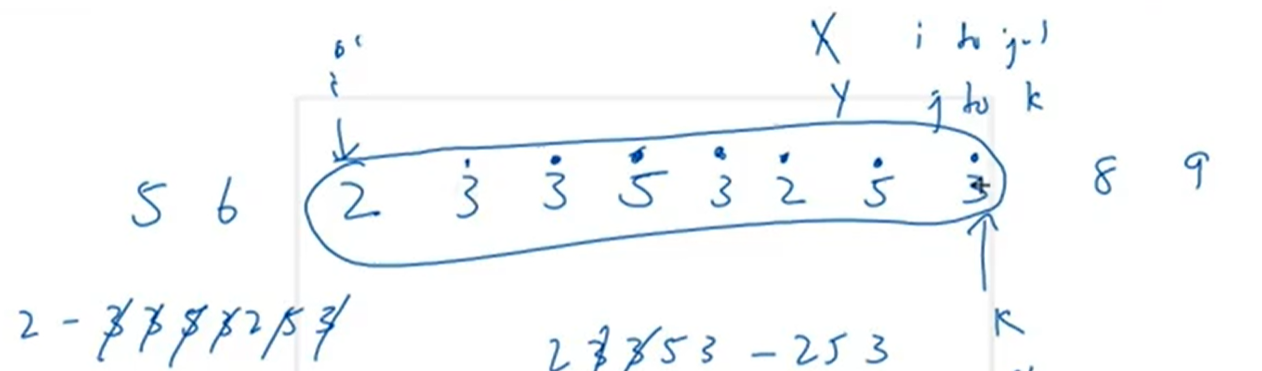 X i to j-1
i
Y j to k
5 6 2 3 3 5 3 2 5 3 8 9
k
2 - 3 3 5 3 2 5 3
2 3 3 5 3 - 2 5 3